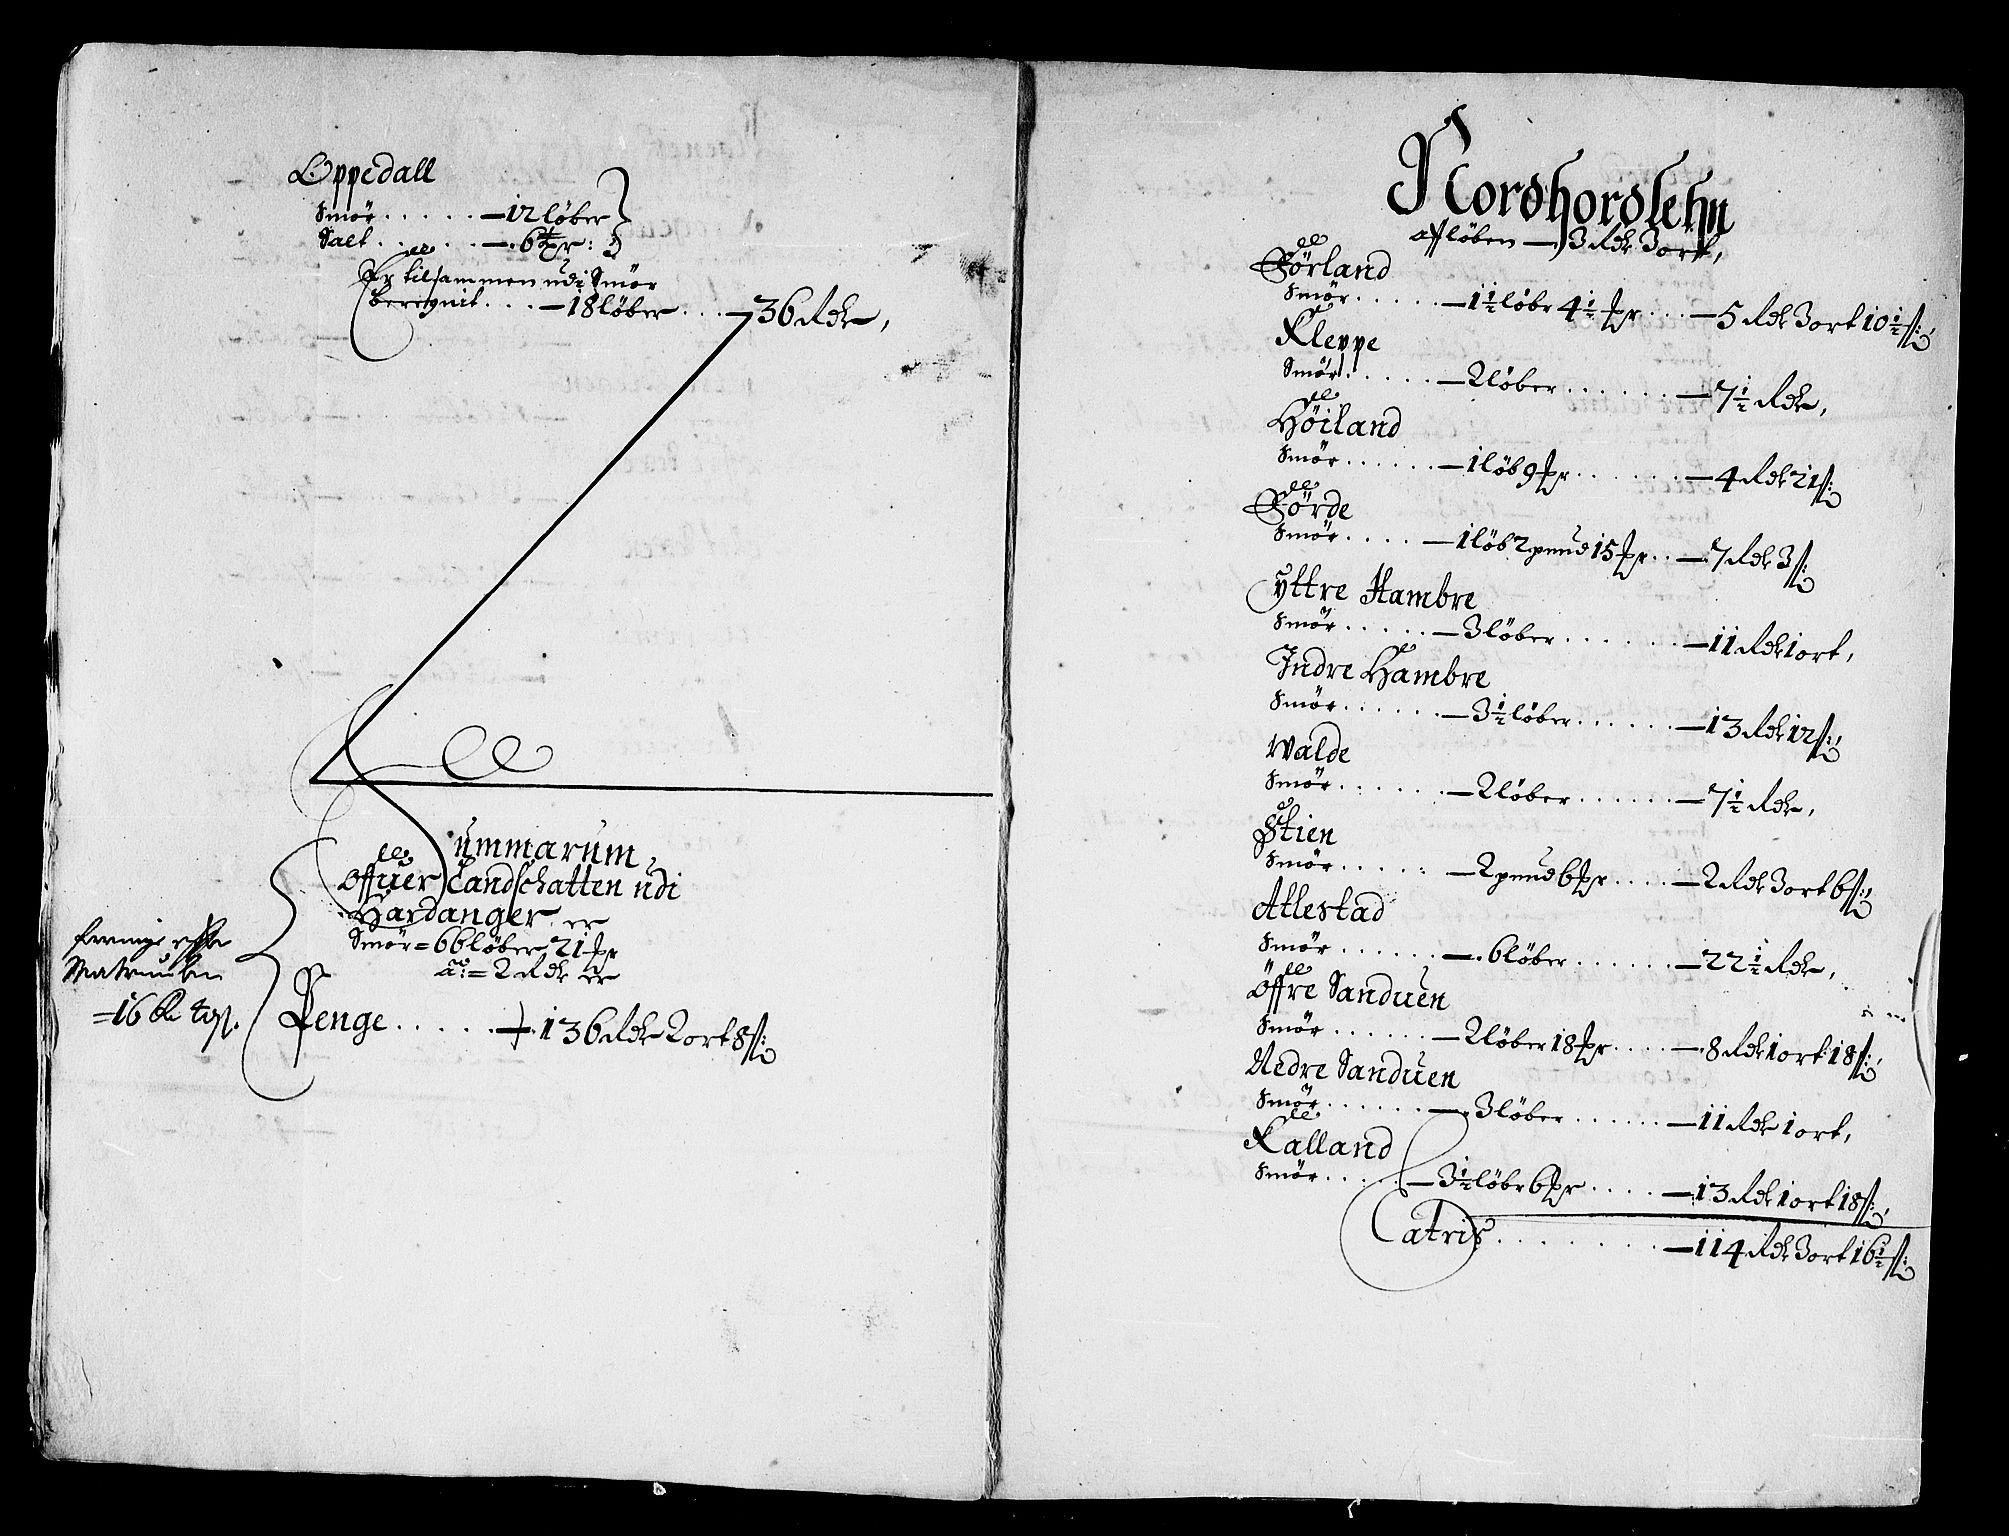 Oppedall
Smör . . . . . 12 löber
Salt . . . . . 6 tr:
Er tilsammen udi Smör
beregnit . . . 18 löber . . . 36 Rdlr,
Summarum
Offuer Landschatten udi
Hardanger er
Smör = 66 löber 21 pr
a: = 2 Rdlr er
Penge . . . . . 136 Rdlr 2 ort 8 ß:
Matriculen
= 16
Nordhordlehn
aff löben — 3 Rdlr 3 ort,
Förland
Smör . . . . . 1½ löbr 4½ pr . . . 5 Rdlr 3 ort 10½ ß:
Kleppe
Smör . . . . . 2 löber . . . . . . 7½ Rdlr,
Höiland
Smör . . . . . . 1 löb 9 pr . . . . . . 4 Rdlr 21 ß:
Förde
Smör . . . . 1 löb 2 pund 15 pr . . 7 Rdlr 3 ß:
Yttre Hambre
Smör . . . . . 3 löber . . . . . . 11 Rdlr 1 ort,
Indre Hambre
Smör . . . . . . 3½ löber . . . . . . 13 Rdlr 12 ß:
Walde
Smör . . . . . . 2 löber . . . . . . 7½ Rdlr,
Stien
Smör . . . . . 2 pund 6 pr . . . . 2 Rdlr 3 ort 6 ß:
Atlestad
Smör . . . . . . 6 löber . . . . . . 22½ Rdlr,
Öffre Sanduen
Smör . . . . . . 2 löber 18 pr . . . . 8 Rdlr 1 ort 18 ß:
Nedre Sanduen
Smör . . . . . . 3 löber . . . . . . 11 Rdlr 1 ort,
Kalland
Smör . . . . . 3½ löbr 6 pr . . . . 13 Rdlr 1 ort 18 ß:
Latris . . . . . . . . 114 Rdlr 3 ort 16½ ß: